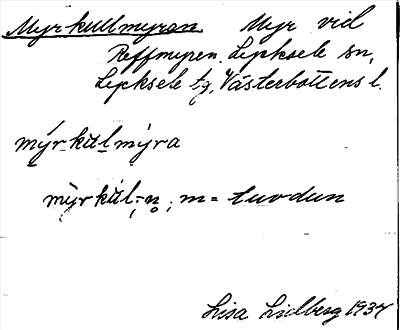 Myrkullmyran. Myr vid
Reffmyren. Lycksele sn,
Lycksele tg, Västerbottens l.
mýrkúlmýra
mỳrkúl-n̥, m = tuvdun
Lisa Lidberg 1937